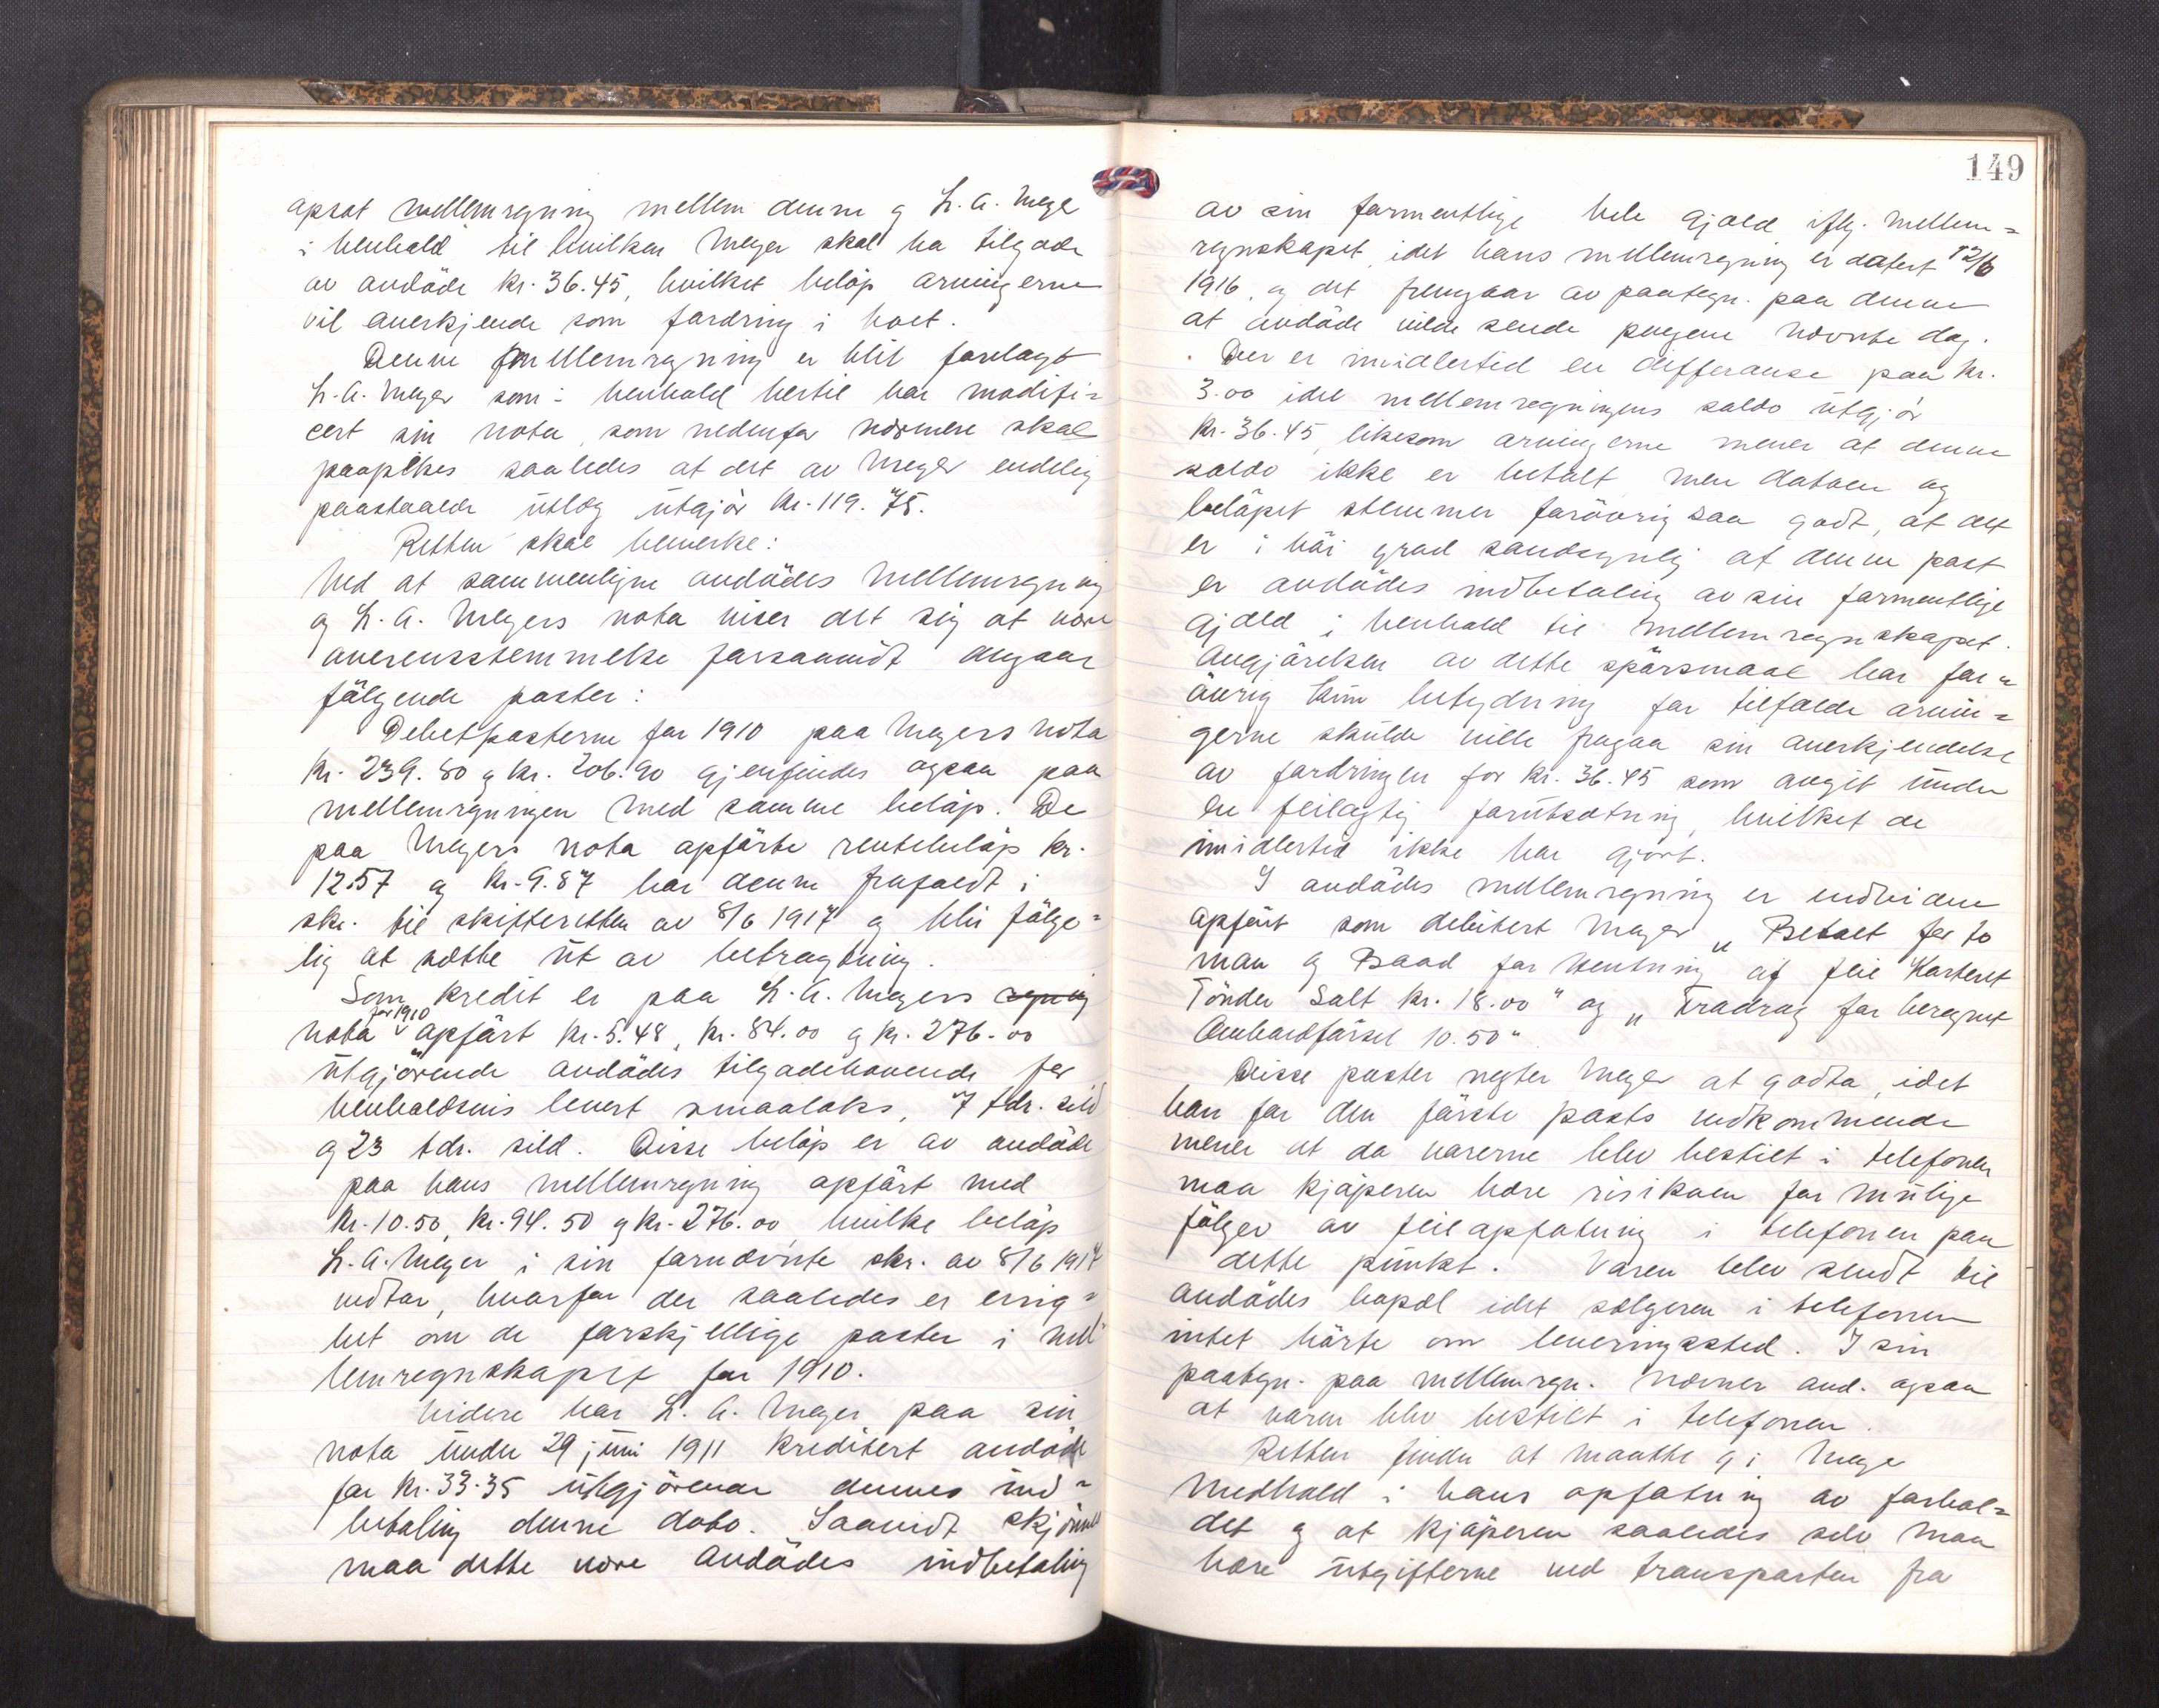 opsat mellemregning mellem denne og L. A. Meyer
i henhold til hvilken Meyer skal ha tilgode
av avdøde kr. 36.45, hvilket beløp arvingerne
vil anerkjende som fordring i boet.
Denne mellemregning er blit forelagt
L. A. Meyer som i henhold hertil har modifi=
cert sin nota, som nedenfor nærmere skal
paapekes saaledes at det av Meyer endelig
paastaaede utlæg utgjör kr. 119.75.
Retten skal bemerke:
Ved at sammenligne avdödes mellemregning
og L. A. Meyers nota viser det sig at være
overensstemmelse forsaavidt angaar
fölgende poster:
Debetposterne for 1910 paa Meyers nota
kr. 239.80 og kr. 206.90 gjenfindes ogsaa paa
mellemregningen med samme belöp. De
paa Meyers nota opförte rentebelöp kr.
12.57 og kr. 9.87 har denne frafaldt i
skr. til skifteretten av 8/6 1917 og blir fölge=
lig at sætte ut av betragtning.
Som kredit er paa L. A. Meyers regning
nota for 1910 opfört kr. 5.48, kr. 84.00 og kr. 276.00
utgjörende avdödes tilgodehavende for
henholdsvis levert smaalaks, 7 tdr. sild
og 23 tdr. sild. Disse belöp er av avdöde
paa hans mellemregning opfört med
kr. 10.50, kr. 94.50 og kr. 276.00 hvilke belöp
L. A. Meyer i sin fornævnte skr. av 8/6 1917
vedtar, hvorfor der saaledes er enig=
het om de forskjellige poster i mel
lemregnskapet for 1910.
Videre har L. A. Meyer paa sin
nota under 29 juni 1911 kreditert avdöde
for kr. 33.35 utgjörende dennes ind=
betaling denne dato. Saavidt skjönnes
maa dette være avdödes indbetaling
149
av sin formentlige hele gjæld iflg. mellem=
regnskapet, idet hans mellemregning er datert 12/6
1916, og det fremgaar av paategn. paa denne
at avdöde vilde sende pengene nævnte dag.
Der er imidlertid en differanse paa kr.
3.00 idet mellemregningens saldo utgjör
kr. 36.45, likesom arvingerne mener at denne
saldo ikke er betalt men datoen og
belöpet stemmer forövrig saa godt, at det
er i höi grad sandsynlig at denne post
er avdödes indbetaling av sin formentlige
gjæld i henhold til mellemregnskapet.
Avgjörelsen av dette spörsmaal har for=
övrig kun betydning for tilfælde arvin=
gerne skulde ville fragaa sin anerkjendelse
av fordringen for kr. 36.45 som avgit under
en feilagtig forutsætning, hvilket de
imidlertid ikke har gjort.
I avdödes mellemregning er endvidere
opfört som debitert Meyer „Betalt for to
man og Baad for Hentning af feil Karteret
Tönder Salt kr. 18.00" og „Fradrag for beregnet
Ombordförsel 10.50"
Disse poster negter Meyer at godta, idet
han for den förste posts vedkommende
mener at da varerne blev bestilt i telefonen
maa kjöperen bære risikoen for mulige
fölger av feilopfatning i telefonen paa
dette punkt. Varen blev sendt til
avdödes bopæl idet sælgeren i telefonen
intet hörte om leveringssted. I sin
paategn. paa mellemregn. nævner avd. ogsaa
at varen blev bestilt i telefonen.
Retten finder at maatte gi Meyer
medhold i hans opfatning av forhol=
det og at kjöperen saaledes selv maa
bære utgifterne ved transporten fra